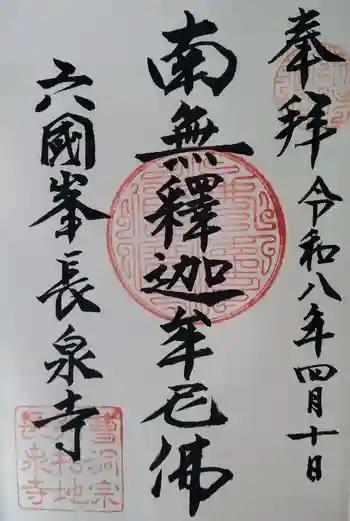 奉拝
令和八年四月十日
南無釋迦牟尼佛
六國峯長泉寺
曹洞宗
長泉寺